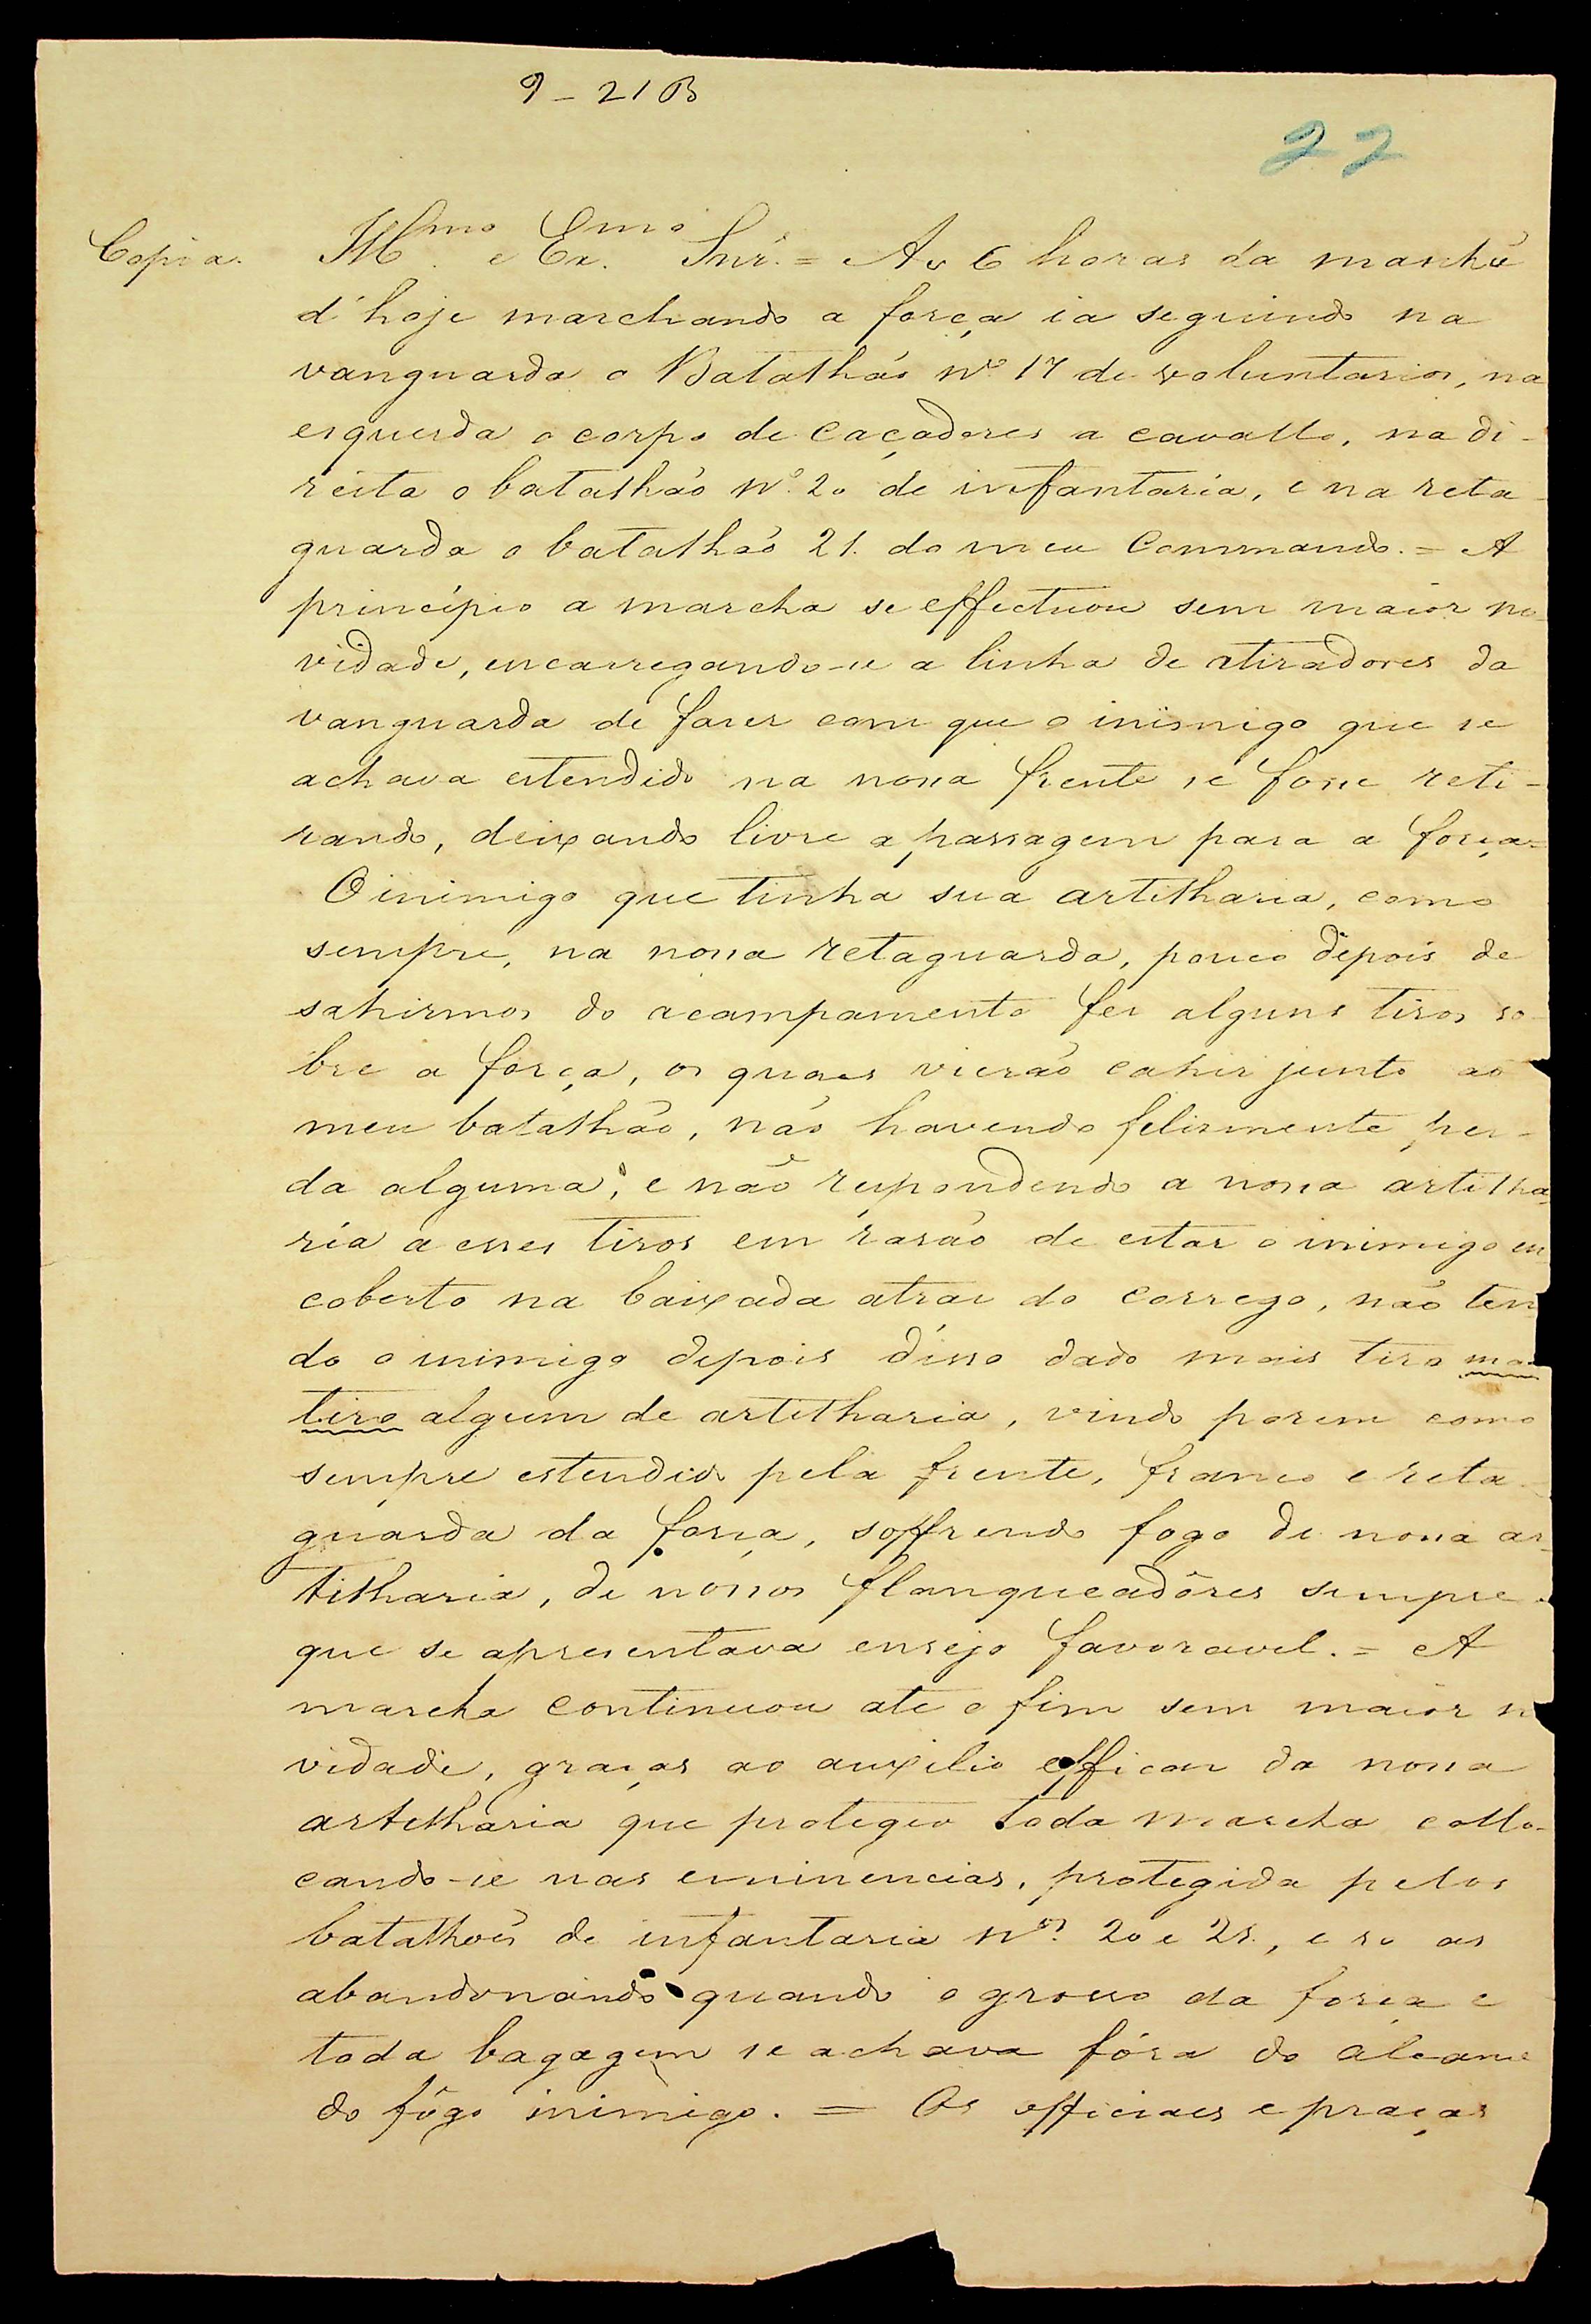 9-21B
22
Copia. Illmo. e Exmo. Snr. = As 6 horas da manhã
d'hoje marchando a força ia seguindo na
vanguarda o Batalhão Nº 17 de voluntarios, na
esquerda o corpo de caçadores a cavallo, na di-
reita o batalhão Nº. 20 de infantaria, e na reta-
guarda o batalhão 21. do meu Commando. = A
principio a marcha se effectuou sem maior no-
vidade, encarregando-se a linha de atiradores da
vanguarda de fazer com que o inimigo que se
achava estendido na nossa frente se fosse reti-
rando, deixando livre a passagem para a força=
O inimigo que tinha sua artilharia, como
sempre, na nossa retaguarda, pouco depois de
sahirmos do acampamento fez alguns tiros so-
bre a força, os quaes vierão cahir junto ao
meu batalhão, não havendo felismente per-
da alguma, e não respondendo a nossa artilha-
ria a esses tiros em rasão de estar o inimigo en-
coberto na baixada atraz do corrego, não ten-
do o inimigo depois disso dado mais tiro mais
tiro algum de artilharia, vindo porem como
sempre estendido pela frente, franco e reta-
guarda da força, soffrendo fogo de nossa ar-
tilharia, de nossos flanqueadôres sempre
que se apresentava ensejo favoravel. = A
marcha continuou ate o fim sem maior n
vidade, graças ao auxilio efficaz da nossa
artilharia que protegeo toda marcha collo-
cando-se nas eminencias, protegida pelos
batalhões de infantaria Nos. 20 e 21., e so as
abandonando quando o grosso da força e
toda bagagem se achava fóra do alcance
do fôgo inimigo. = Os officiaes e praças